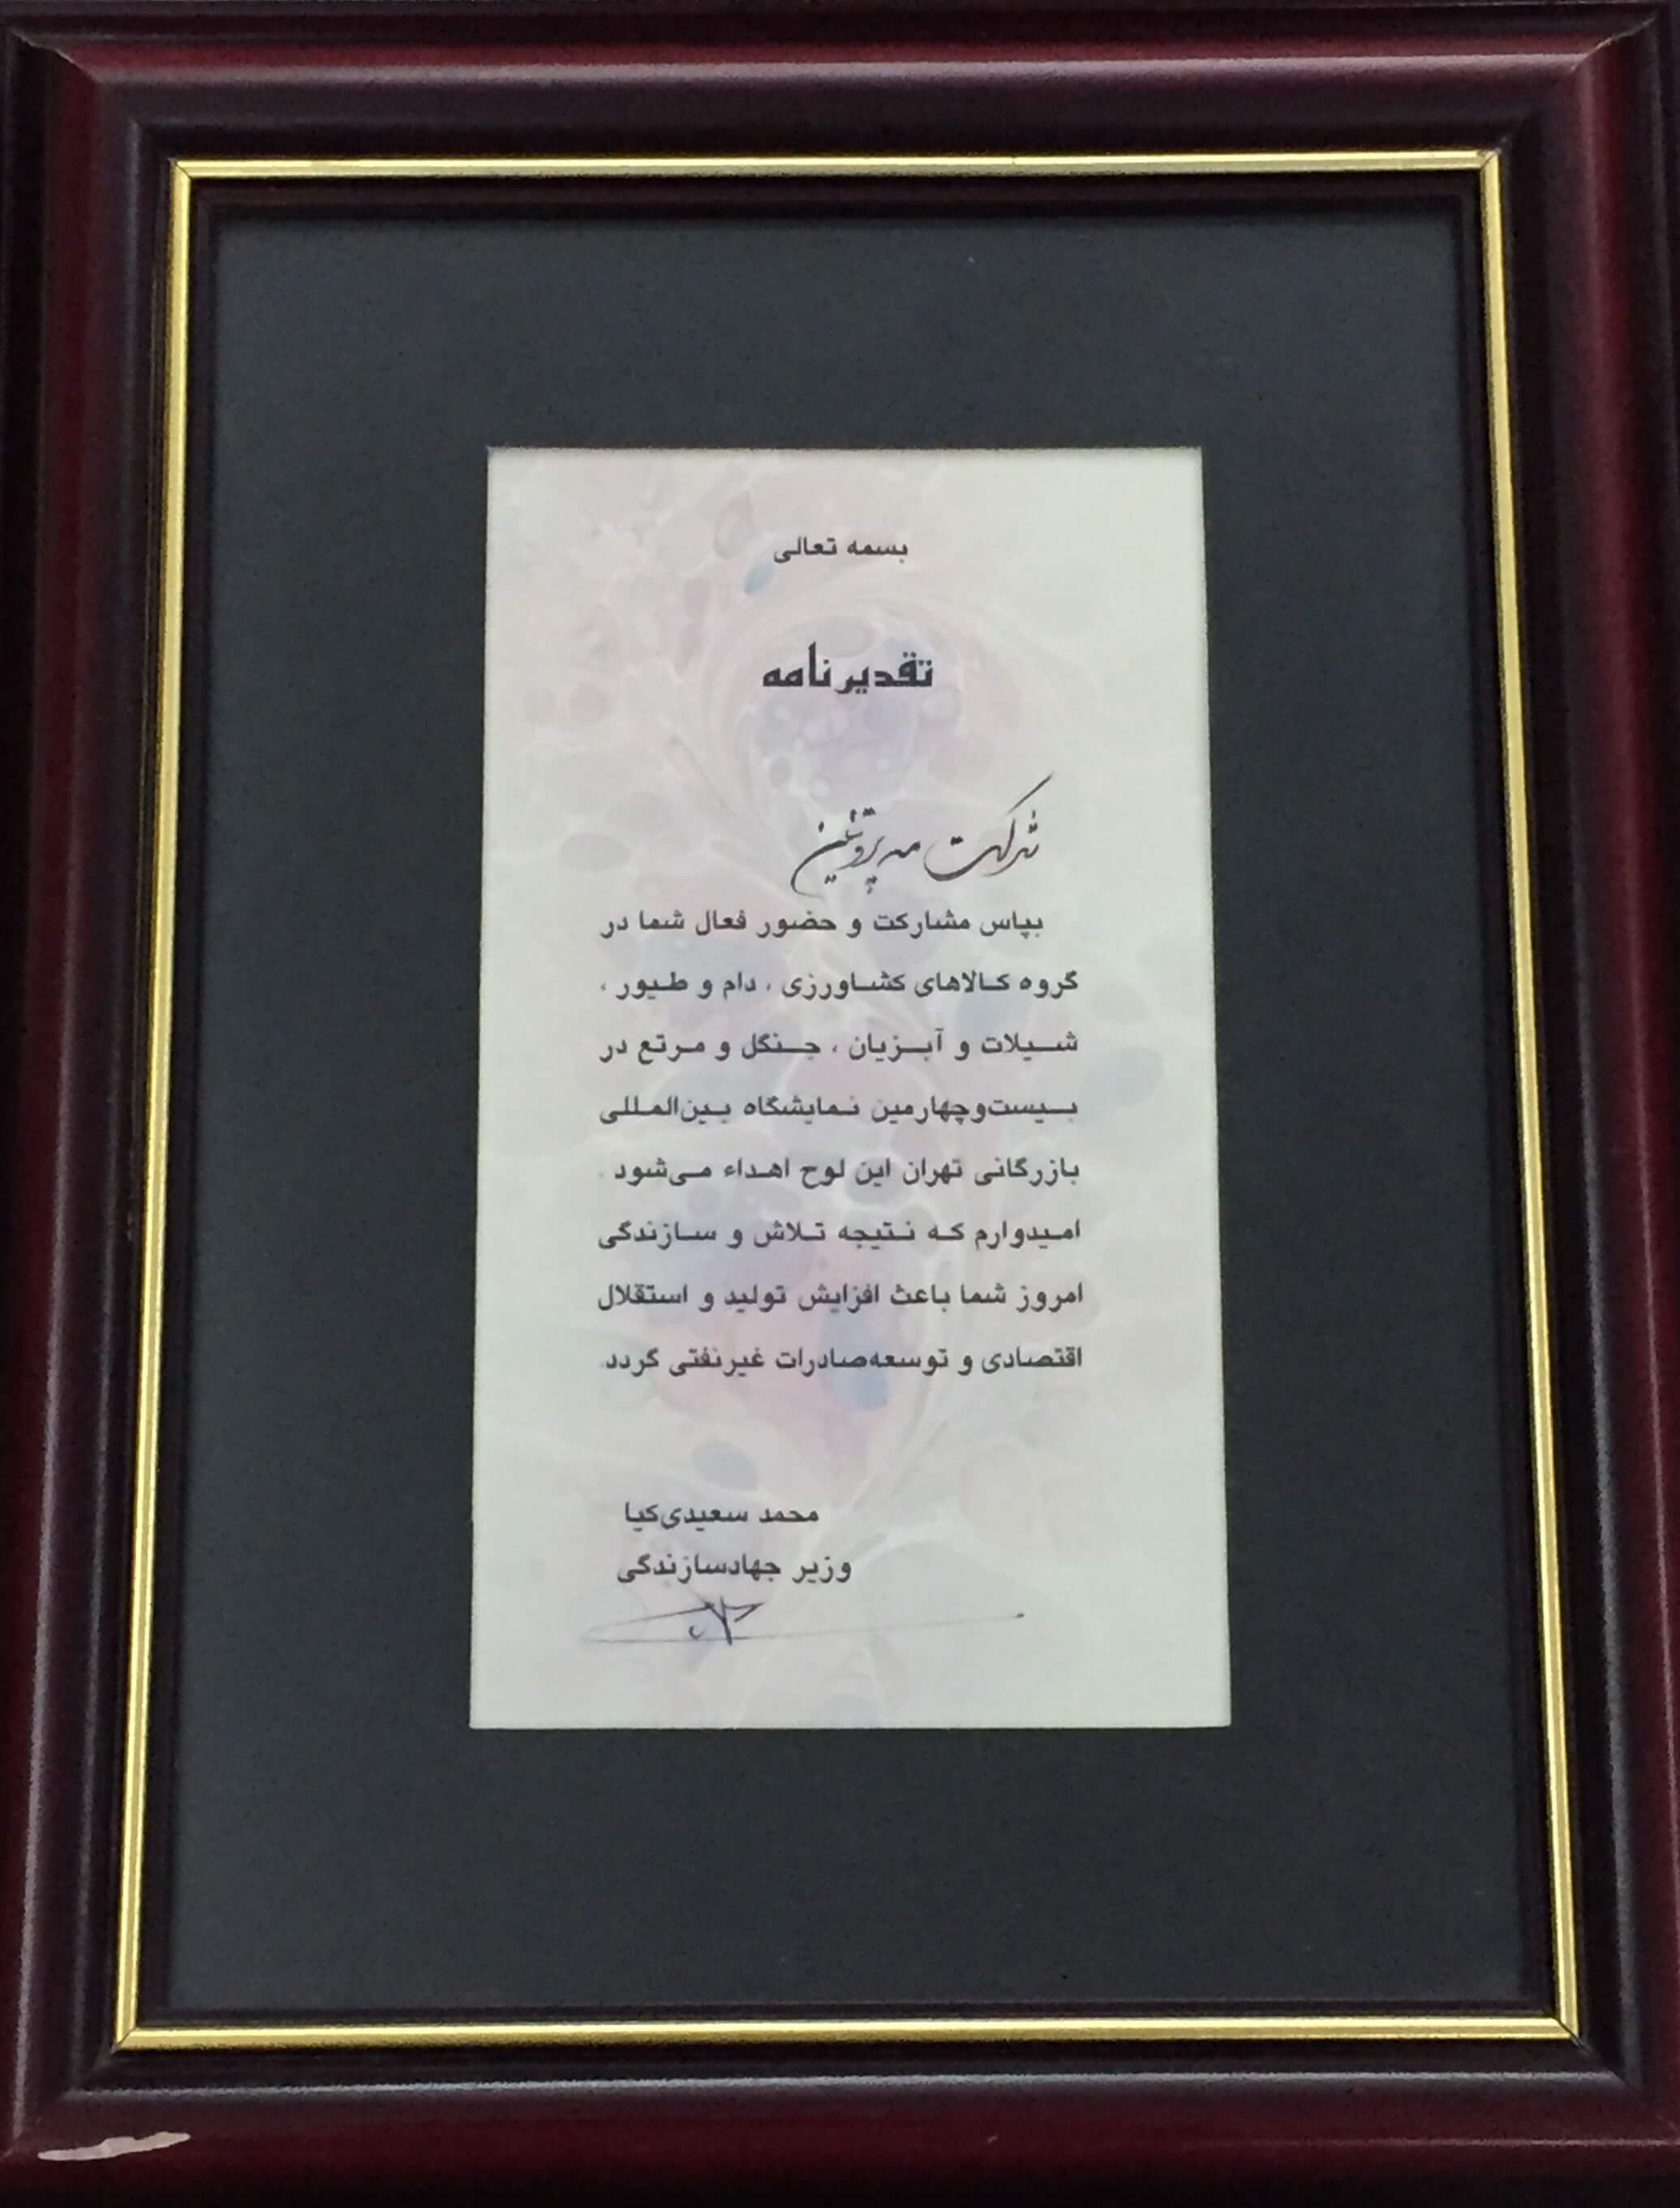 بسمه تعالی
تقدیرنامه
شرکت مه پروتئین
بپاس مشارکت و حضور فعال شما در
گروه کالاهای کشاورزی ، دام و طیور ،
شیلات و آبزیان ، جنگل و مرتع در
بیست‌وچهارمین نمایشگاه بین‌المللی
بازرگانی تهران این لوح اهداء می‌شود .
امیدوارم که نتیجه تلاش و سازندگی
امروز شما باعث افزایش تولید و استقلال
اقتصادی و توسعه‌صادرات غیرنفتی گردد.
محمد سعیدی‌کیا
وزیر جهادسازندگی